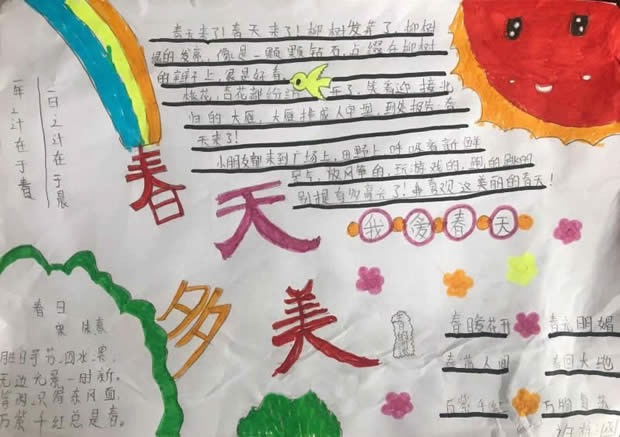 春天来了!春天来了!柳树发芽了,柳树
的发芽,像是一颗颗钻石,点缀在柳树
的辫子上,真是好看
桃花,杏花都纷纷开了,笑着迎接北
归的大雁,大雁排成人字型,到处报告春
天来了!
小朋友都来到广场上,田野上呼吸着新鲜
空气,放风筝的,玩游戏的,闹的跳的
别提有多高兴了!我喜欢这美丽的春天!
一日之计在于晨
一年之计在于春
春天
多美
我爱春天
春日
宋 朱熹
胜日寻芳泗水滨,
无边光景一时新。
等闲识得东风面,
万紫千红总是春。
春暖花开
春光明媚
春满人间
春回大地
万紫千红
万物复苏